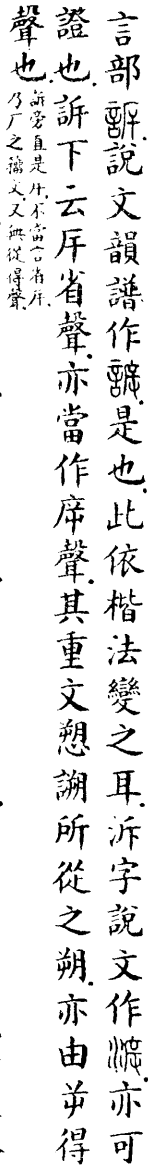 言部訴.說文韻譜作是也.此依楷法變之耳.泝字說文作亦可
證也.訴下云厈省聲.亦當作㡿聲.其重文愬𧪜所從之朔.亦由屰得
聲也.
訴旁直是厈.不當言省.厈
乃厂之籀文.又無從得聲.